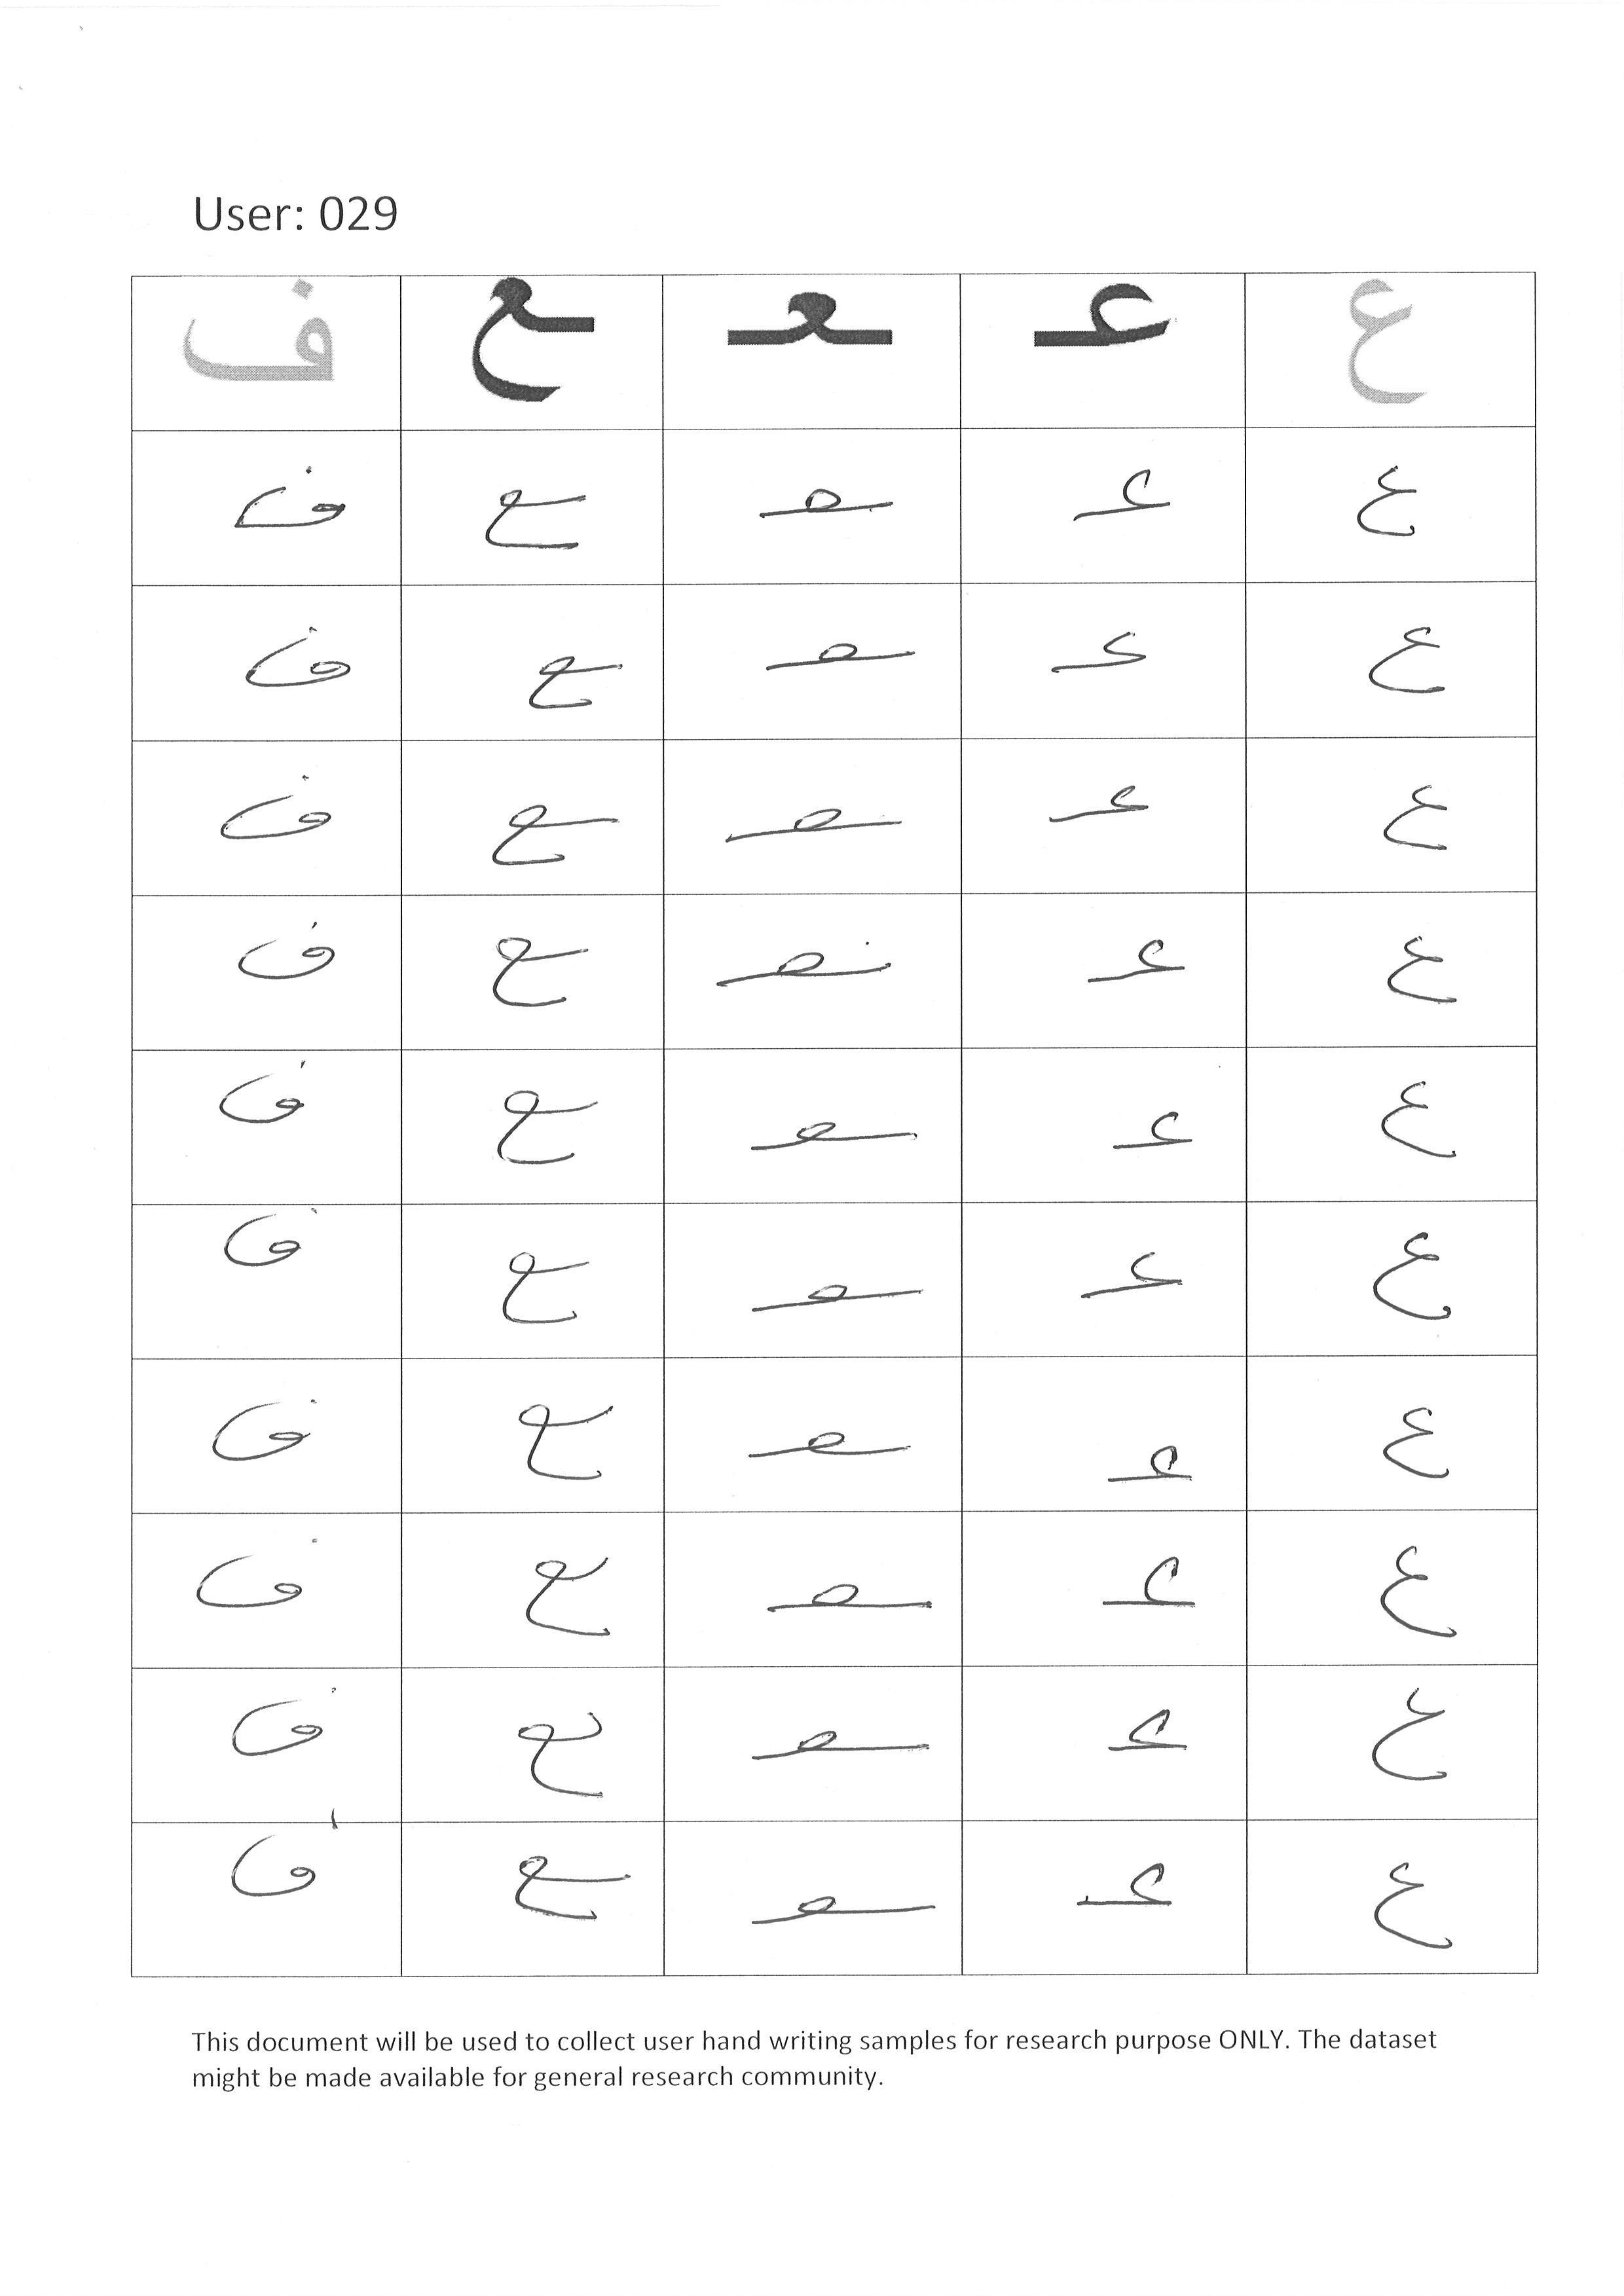 User: 029
ع عـ ـعـ ـع ف
ع عـ ـعـ ـع ف
ع عـ ـعـ ـع ف
ع عـ ـعـ ـع ف
ع عـ ـعـ ـع ف
ع عـ ـعـ ـع ف
ع عـ ـعـ ـع ف
ع عـ ـعـ ـع ف
ع عـ ـعـ ـع ف
ع عـ ـعـ ـع ف
ع عـ ـعـ ـع ف
This document will be used to collect user hand writing samples for research purpose ONLY. The dataset
might be made available for general research community.